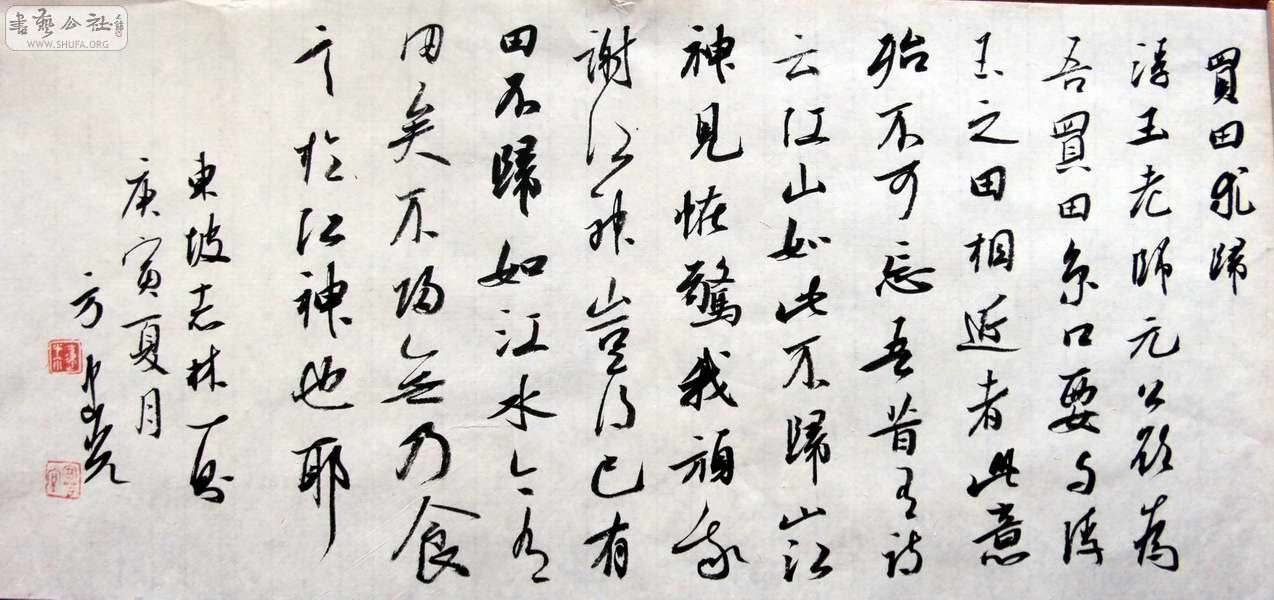 書藝公社
WWW.SHUFA.ORG
買田求歸
浮玉老師元公欲為
吾買田京口要与浮
玉之田相近者此意
殆不可忘吾昔有詩
云江山如此不歸山江
神見怪驚我頑我
謝江神豈得已有
田不歸如江水今有
田矣不歸無乃食
言於江神也耶
東坡志林一則
庚寅夏月
方